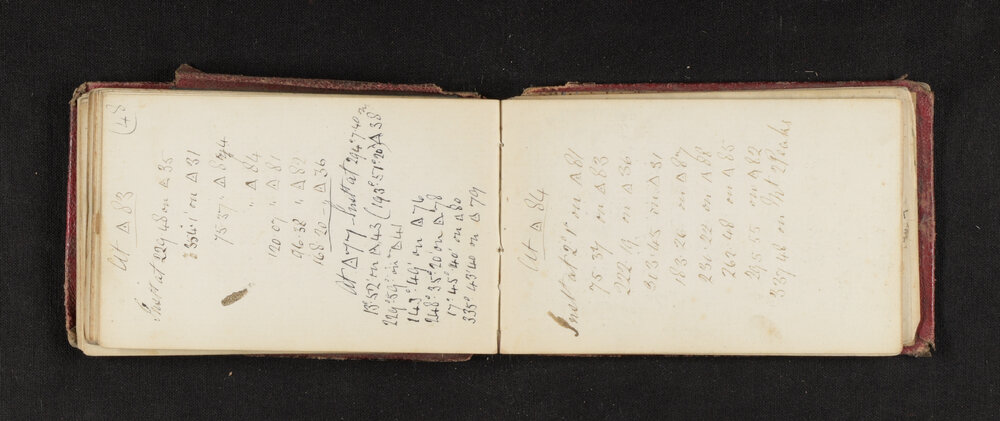 (48
At △ 83
Inst at 229 48 on △ 35
235 41 on △ 31
75 57 " △ 84
" △ 84
120 07 " △ 81
96 32 " △ 82
168 20 " △ 36
At △ 77 Inst at 294° 7' 40
13° 52 on △ 43 (193° 51' 20" △ 38
229° 59' on △ 41
143° 49' on △ 76
248° 35' 20 on △ 78
17° 45' 40" on △ 80
335° 43' 40 on △ 79
At △ 84
Inst at 2° 1' on △ 81
75 37 on △ 83
222 19 on △ 36
313 43 on △ 31
183 26 on △ 87
231 22 on △ 88
262 48 on △ 85
295 55 on △ 82
337 48 on Mt